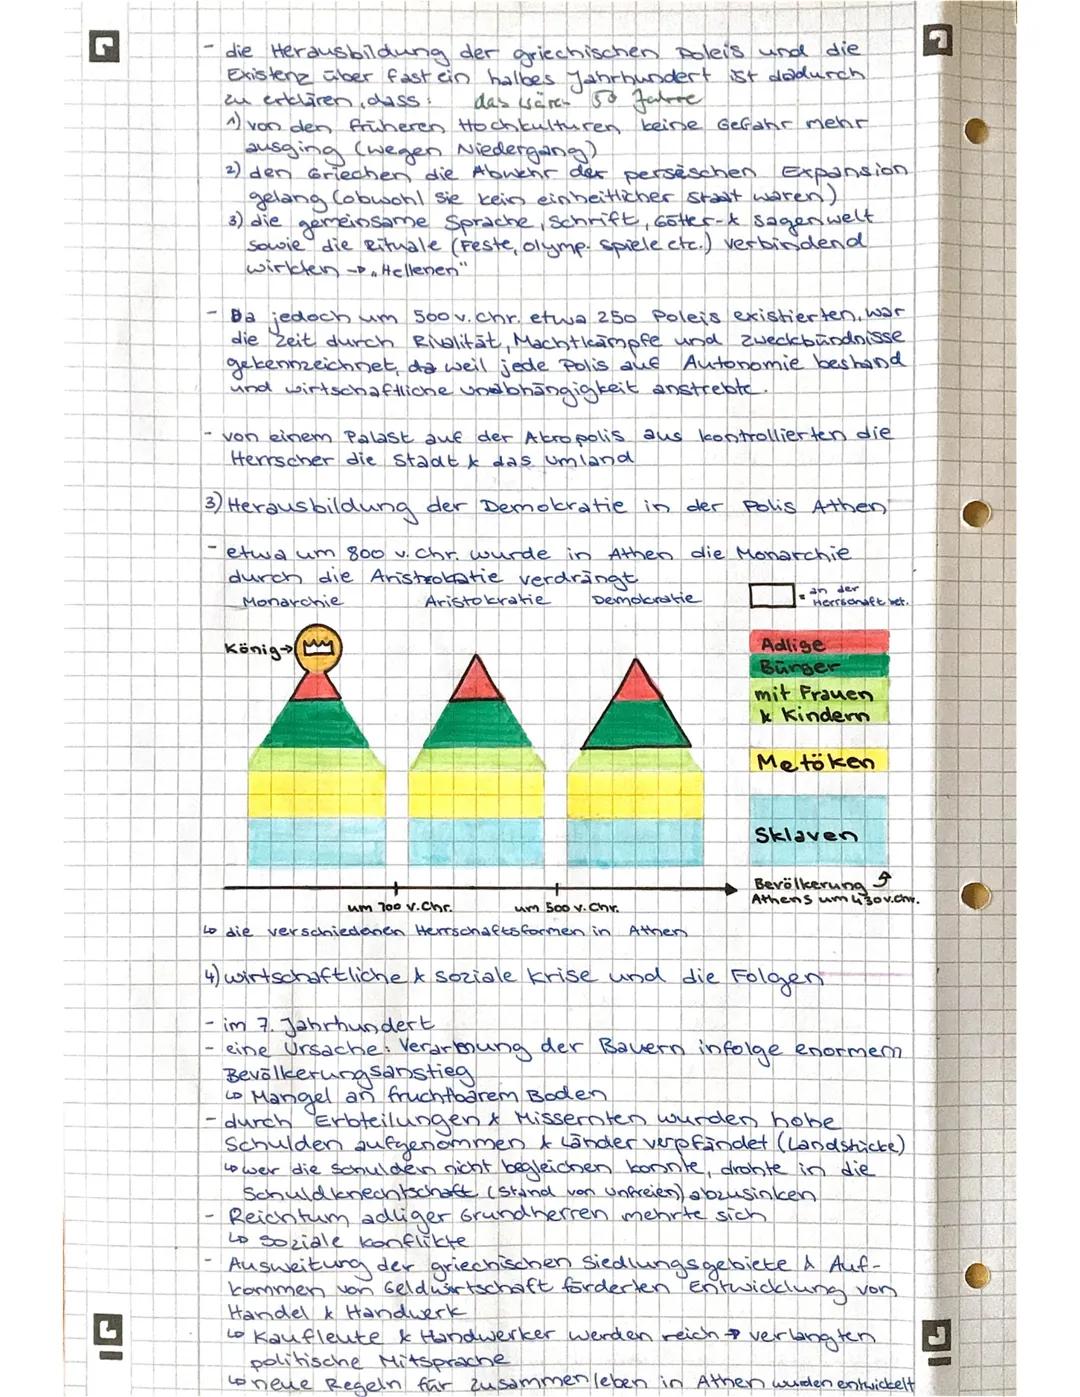 - die Herausbildung der griechischen Poleis und die
Existenz über fast ein halbes Jahrhundert ist dadurch
zu erklären, dass: das wären 50 Jahre
1) von den früheren Hochkulturen keine Gefahr mehr
ausging (wegen Niedergang)
2) den Griechen die Abwehr der persischen Expansion
gelang (obwohl sie kein einheitlicher Staat waren)
3) die gemeinsame Sprache, Schrift, Götter- & Sagenwelt
sowie die Rituale (Feste, olymp. Spiele etc.) verbindend
wirkten → "Hellenen"
- Da jedoch um 500 v. Chr. etwa 250 Poleis existierten, war
die Zeit durch Rivalität, Machtkämpfe und Zweckbündnisse
gekennzeichnet, da weil jede Polis auf Autonomie bestand
und wirtschaftliche Unabhängigkeit anstrebte.
- von einem Palast auf der Akropolis aus kontrollierten die
Herrscher die Stadt & das Umland
3) Herausbildung der Demokratie in der Polis Athen
- etwa um 800 v. Chr. wurde in Athen die Monarchie
durch die Aristrokatie verdrängt
Monarchie Aristokratie Demokratie
= an der
Herrschaft bet.
König→
Adlige
Bürger
mit Frauen
& Kindern
Metöken
Sklaven
Bevölkerung
Athens um 430 v. Chr.
um 700 v. Chr. um 500 v. Chr.
↳ die verschiedenen Herrschaftsformen in Athen
4) wirtschaftliche & soziale Krise und die Folgen
- im 7. Jahrhundert
- eine Ursache: Verarmung der Bauern infolge enormem
Bevölkerungsanstieg
↳ Mangel an fruchtbarem Boden
- durch Erbteilungen & Missernten wurden hohe
Schulden aufgenommen & Länder verpfändet (Landstücke)
↳ wer die Schulden nicht begleichen konnte, drohte in die
Schuldknechtschaft (Stand von Unfreien) abzusinken
- Reichtum adliger Grundherren mehrte sich
↳ soziale Konflikte
- Ausweitung der griechischen Siedlungsgebiete & Auf-
kommen von Geldwirtschaft förderten Entwicklung von
Handel & Handwerk
↳ Kaufleute & Handwerker werden reich → verlangten
politische Mitsprache
↳ neue Regeln für Zusammenleben in Athen wurden entwickelt